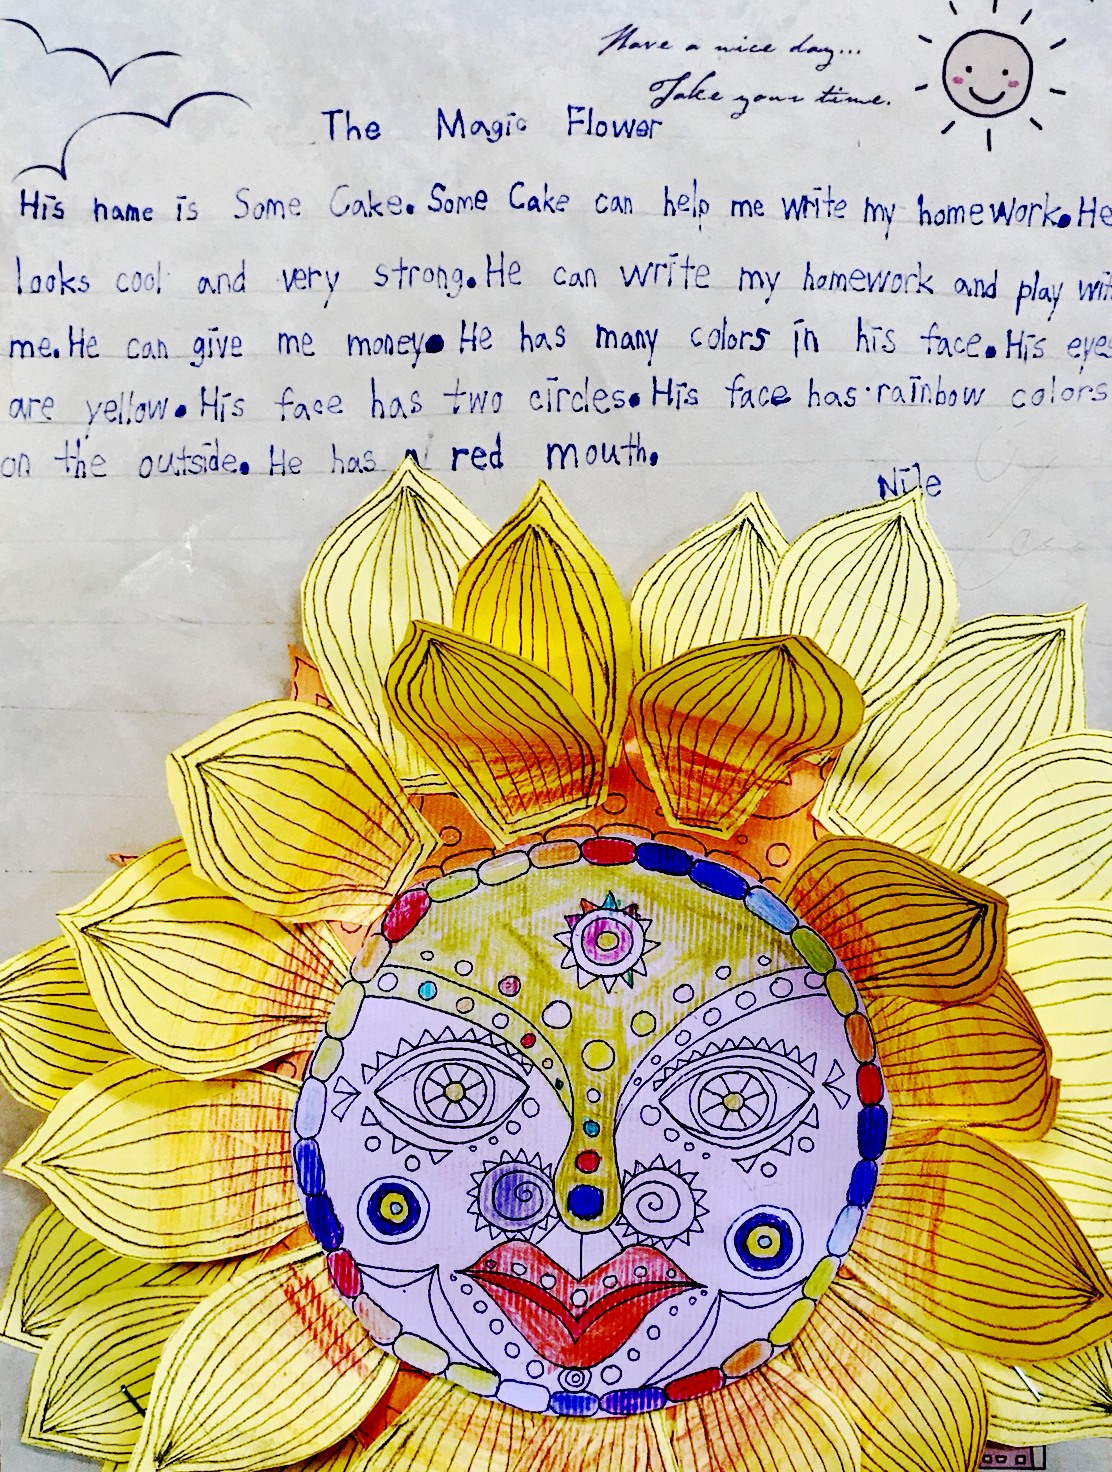 Have a nice day...
Take your time.
The Magic Flower
His name is Some Cake. Some Cake can help me write my homework. He
looks cool and very strong. He can write my homework and play wit
me. He can give me money. He has many colors in his face. His eyes
are yellow. His face has two circles. His face has rainbow colors
on the outside. He has a red mouth.
Nile